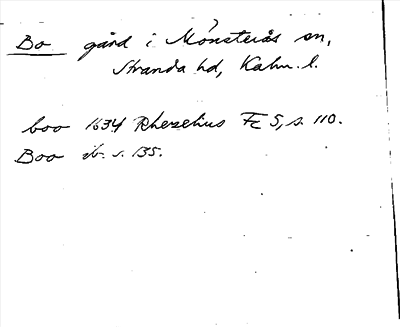 Bo gård i Mönsterås sn,
Stranda hd, Kalm. l.
boo 1634 Rhezelius Fc 5, s. 110.
Boo ib. s. 135.